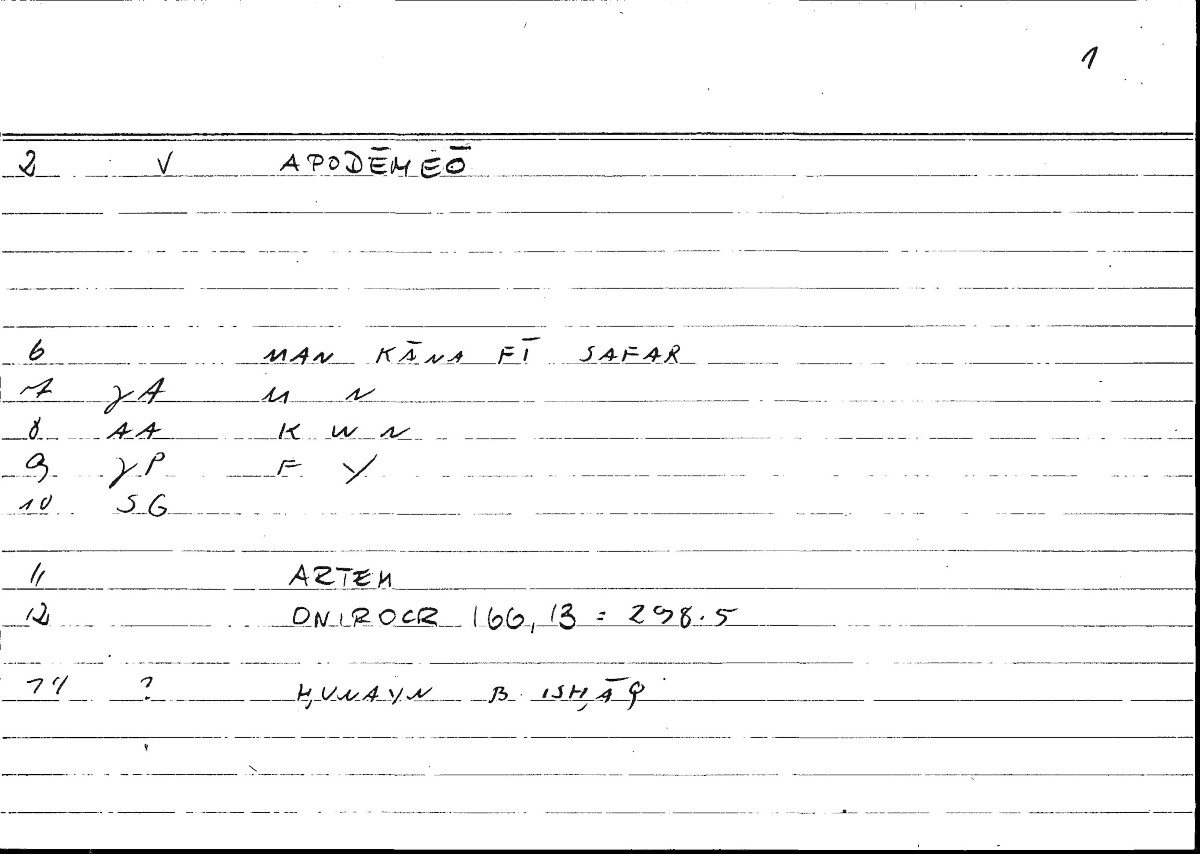 1
2 V APODĒMEŌ
6 MAN KĀNA FĪ SAFAR
7 γA M N
8 AA K W N
9 γP F Y
10 SG
11 ARTEM
12 ONIROCR 166,13 = 298.5
? ḤUNAYN B ISḤĀQ